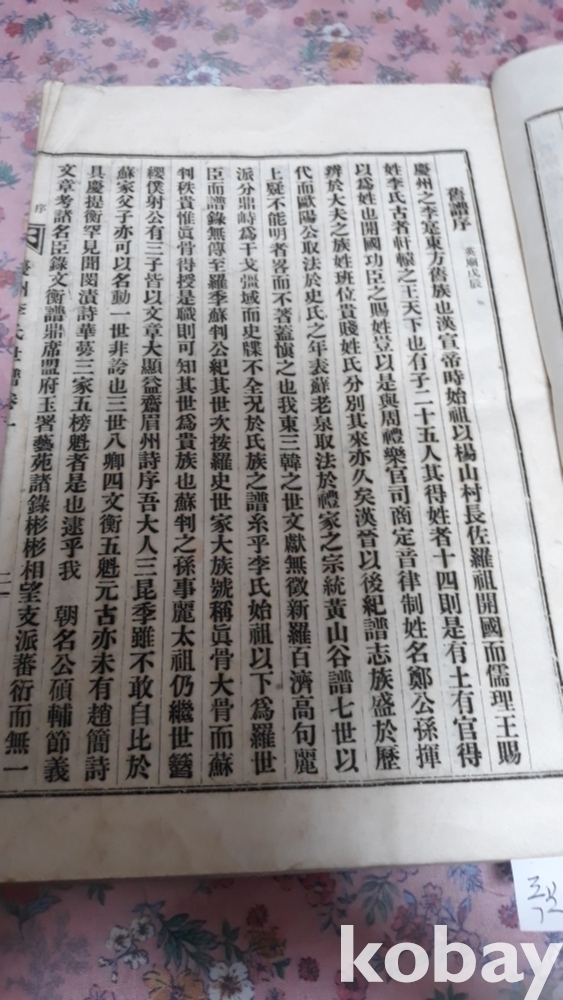 舊譜序 英廟戊辰
慶州之李寔東方舊族也漢宣帝時始祖以楊山村長佐羅祖開國而儒理王賜
姓李氏古者軒轅之王天下也有子二十五人其得姓者十四則是有土有官得
以爲姓也開國功臣之賜姓豈以是與周禮樂官司商定音律制姓名鄭公孫揮
辨於大夫之族姓班位貴賤姓氏分別其來亦久矣漢晉以後紀譜志族盛於歷
代而歐陽公取法於史氏之年表蘇老泉取法於禮家之宗統黃山谷譜七世以
上疑不能明者畧而不著蓋愼之也我東三韓之世文獻無徵新羅百濟高句麗
派分鼎峙爲干戈彊域而史牒不全況於氏族之譜系乎李氏始祖以下爲羅世
臣而譜錄無傳至羅季蘇判公紀其世次按羅史世家大族號稱眞骨大骨而蘇
判秩貴惟眞骨得授是職則可知其世爲貴族也蘇判之孫事麗太祖仍繼世簪
纓僕射公有三子皆以文章大顯益齋眉州詩序吾大人三昆季雖不敢自比於
蘇家父子亦可以名動一世非誇也三世八卿四文衡五魁元古亦未有趙簡詩
具慶提衡罕見聞閔漬詩華萼三家五榜魁者是也逮乎我 朝名公碩輔節義
文章考諸名臣錄文衡譜鼎席盟府玉署藝苑諸錄彬彬相望支派蕃衍而無一
序
慶州李氏世譜卷一
kobay